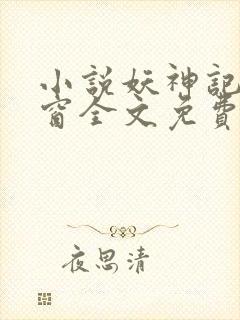 小説妖神記
窗全文免費
夜思清